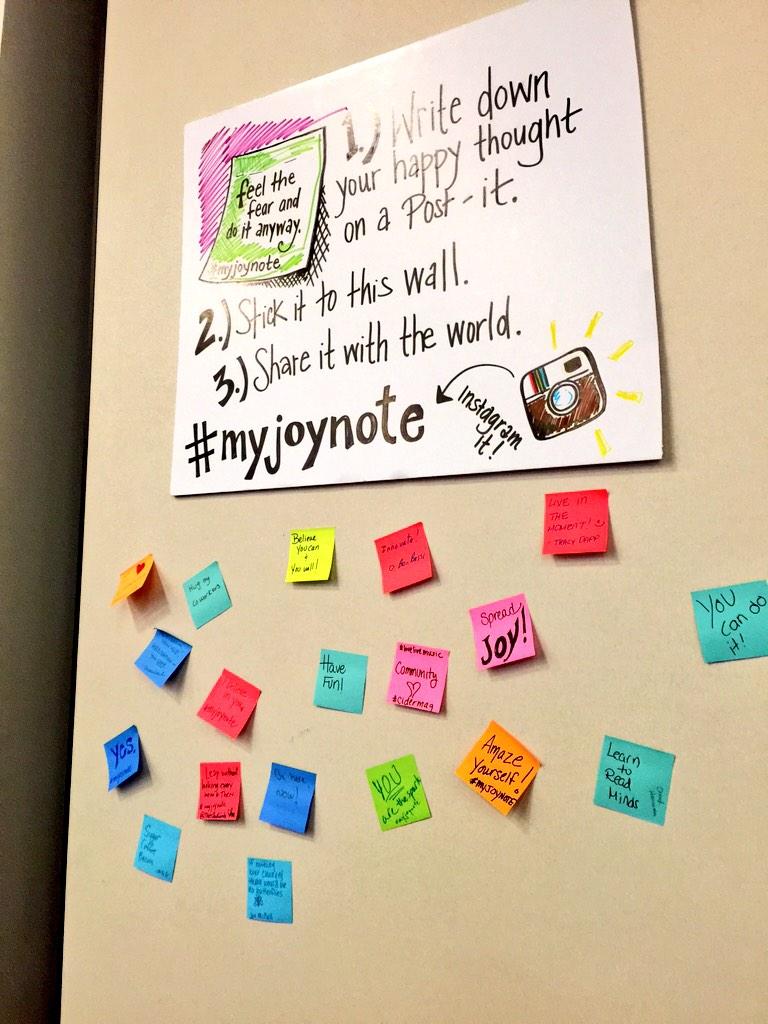 1.) Write down
your happy thought
on a Post-it.
feel the
fear and
do it anyway.
#myjoynote
2.) Stick it to this wall.
3.) Share it with the world.
#myjoynote
Instagram
it!
LIVE IN
THE
MOMENT!
- TRACY
Believe
You can +
You will!
Innovate!
Hug my
coworkers
Spread
JOY!
YOU
can do
it!
Have
Fun!
#livelivemusic
Community
#cidermag
#myjoynote
Yes,
#myjoynote
Leap without
#myjoynote
Be here
now!
YOU
are the spark
#myjoynote
Amaze
Yourself!
#MYJOYNOTE
Learn
to
Read
Minds
If nothing
ever changed
there would be
no butterflies